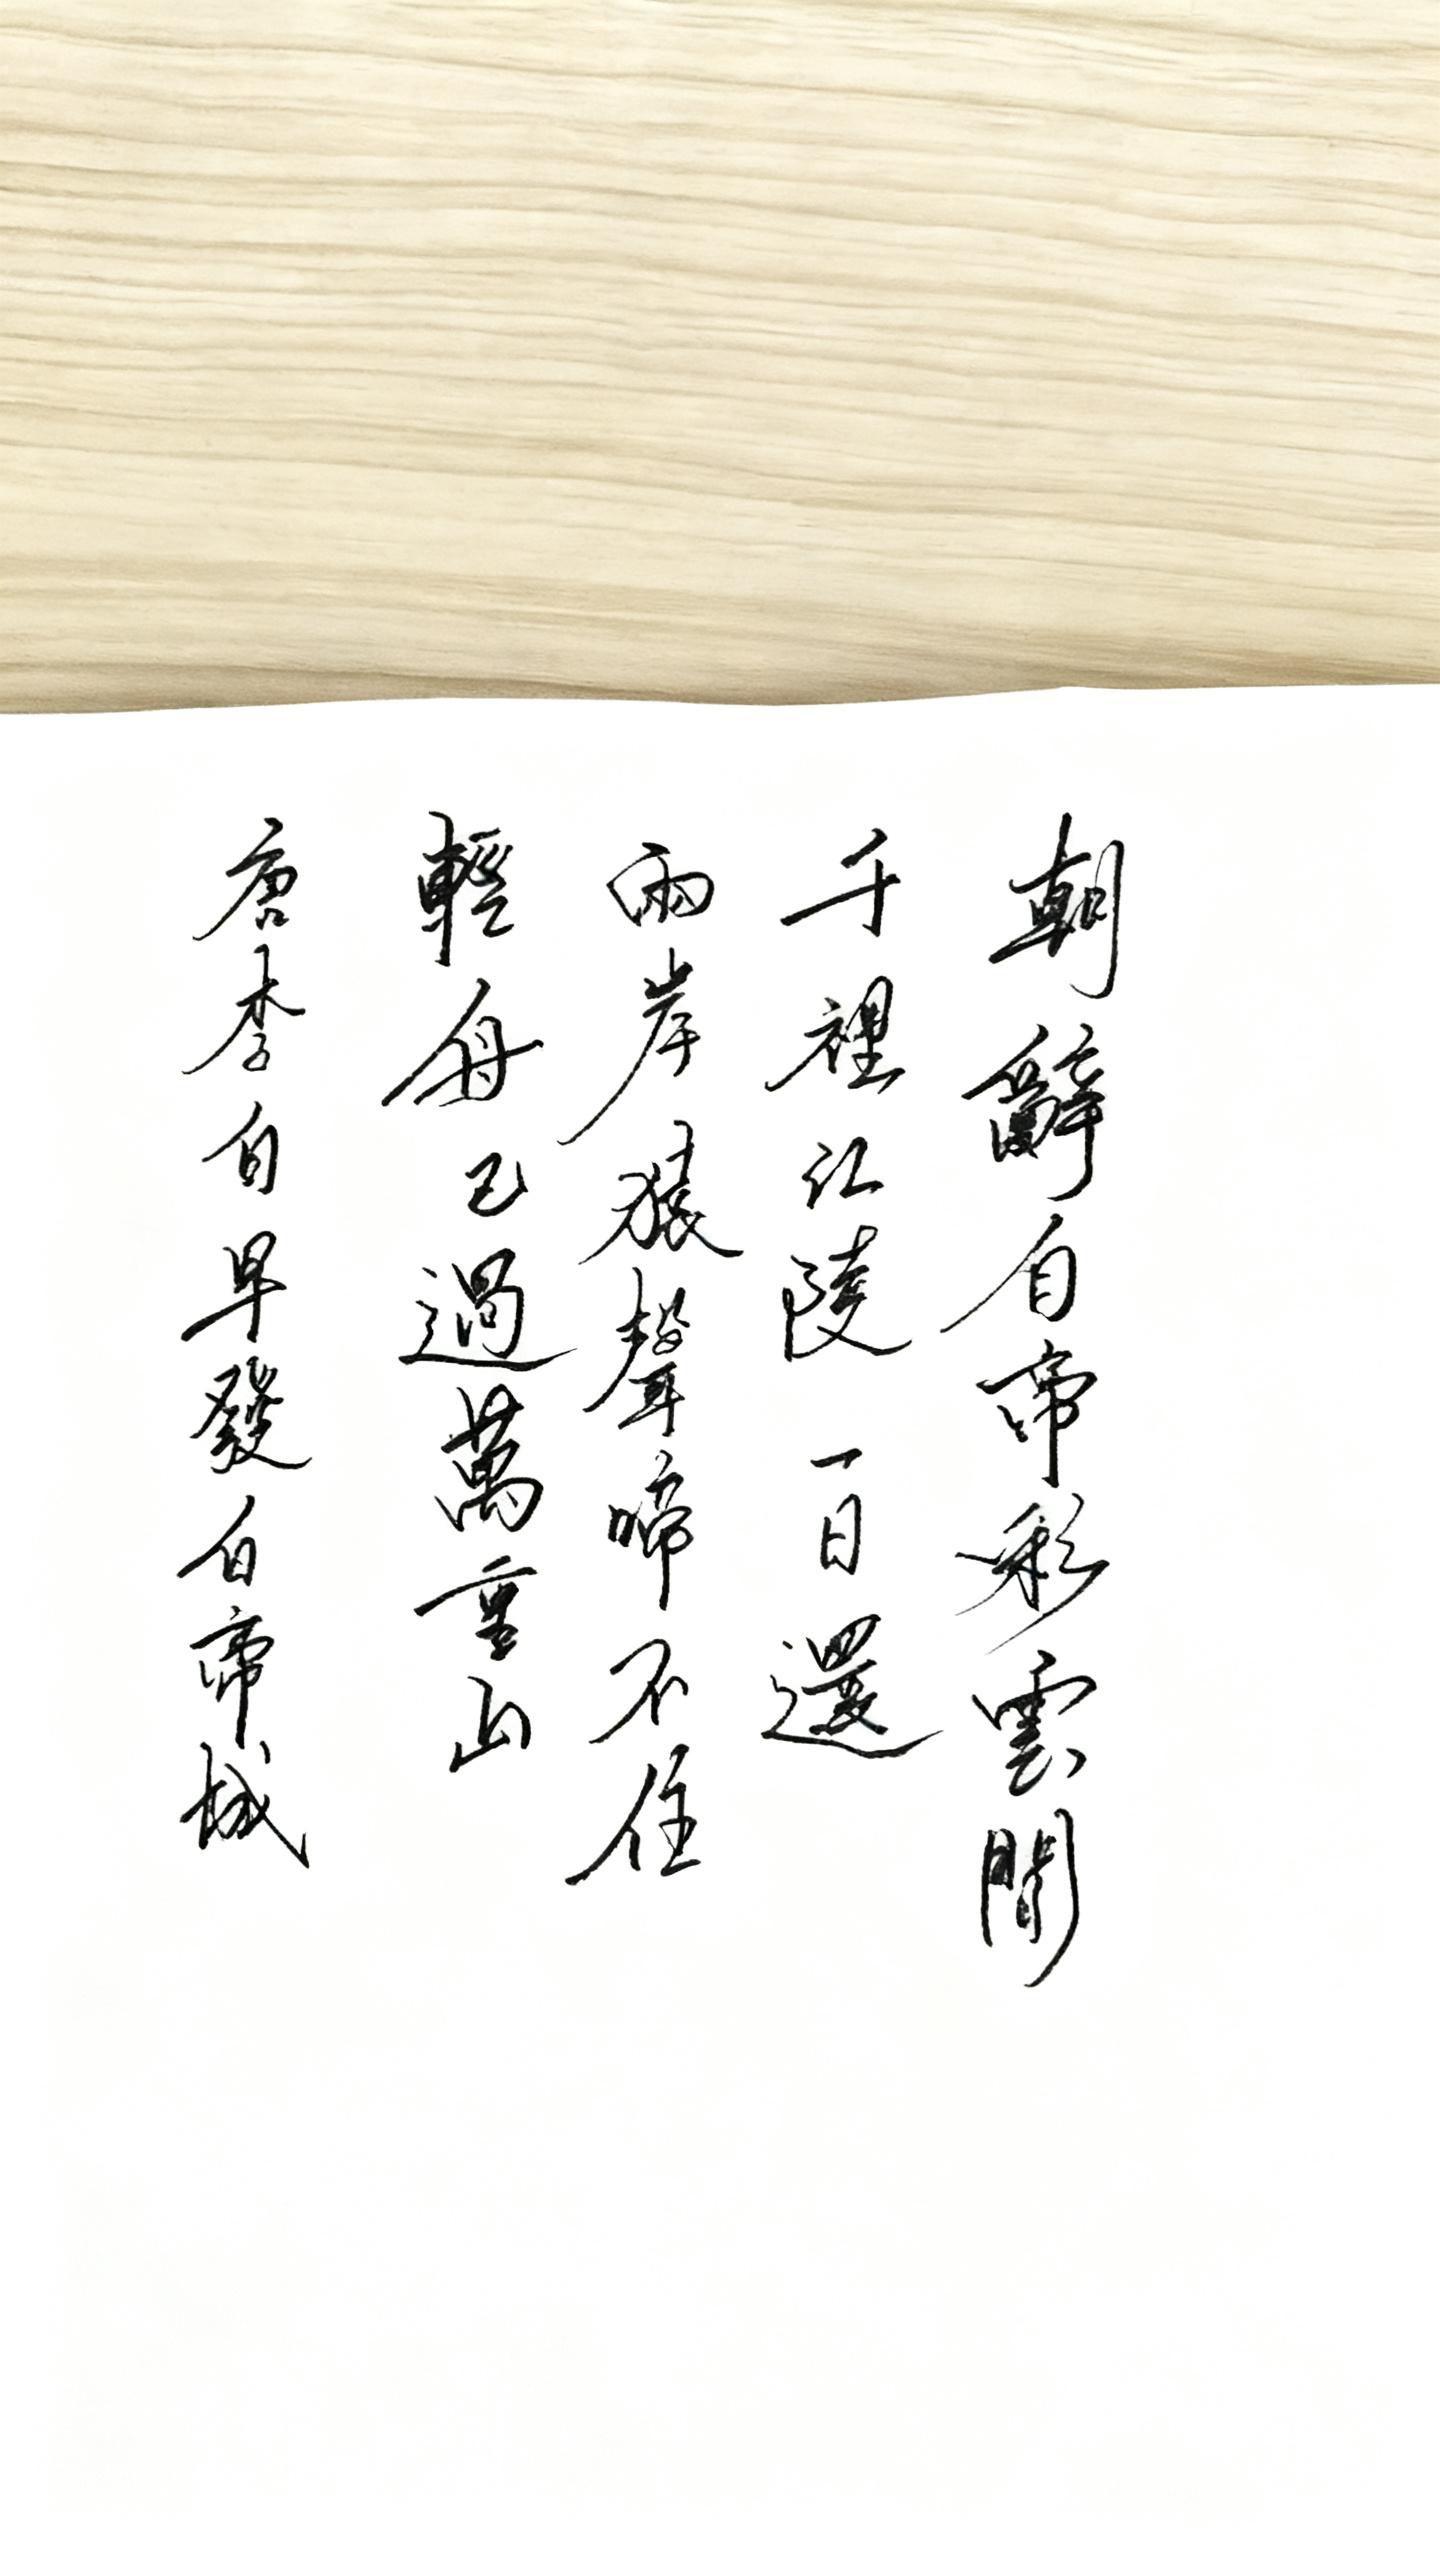 朝辭白帝彩雲間
千裡江陵一日還
兩岸猿聲啼不住
輕舟已過萬重山
唐李白早發白帝城